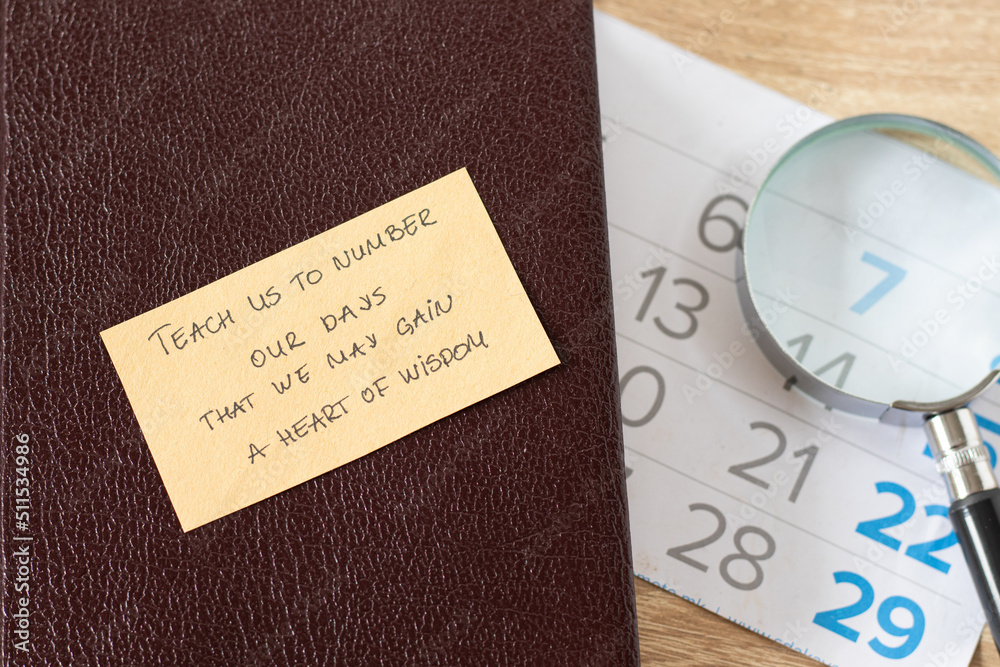 TEACH US TO NUMBER
OUR DAYS
THAT WE MAY GAIN
A HEART OF WISDOM
6
7
13
14
21
22
28
29
Adobe Stock | #511534986